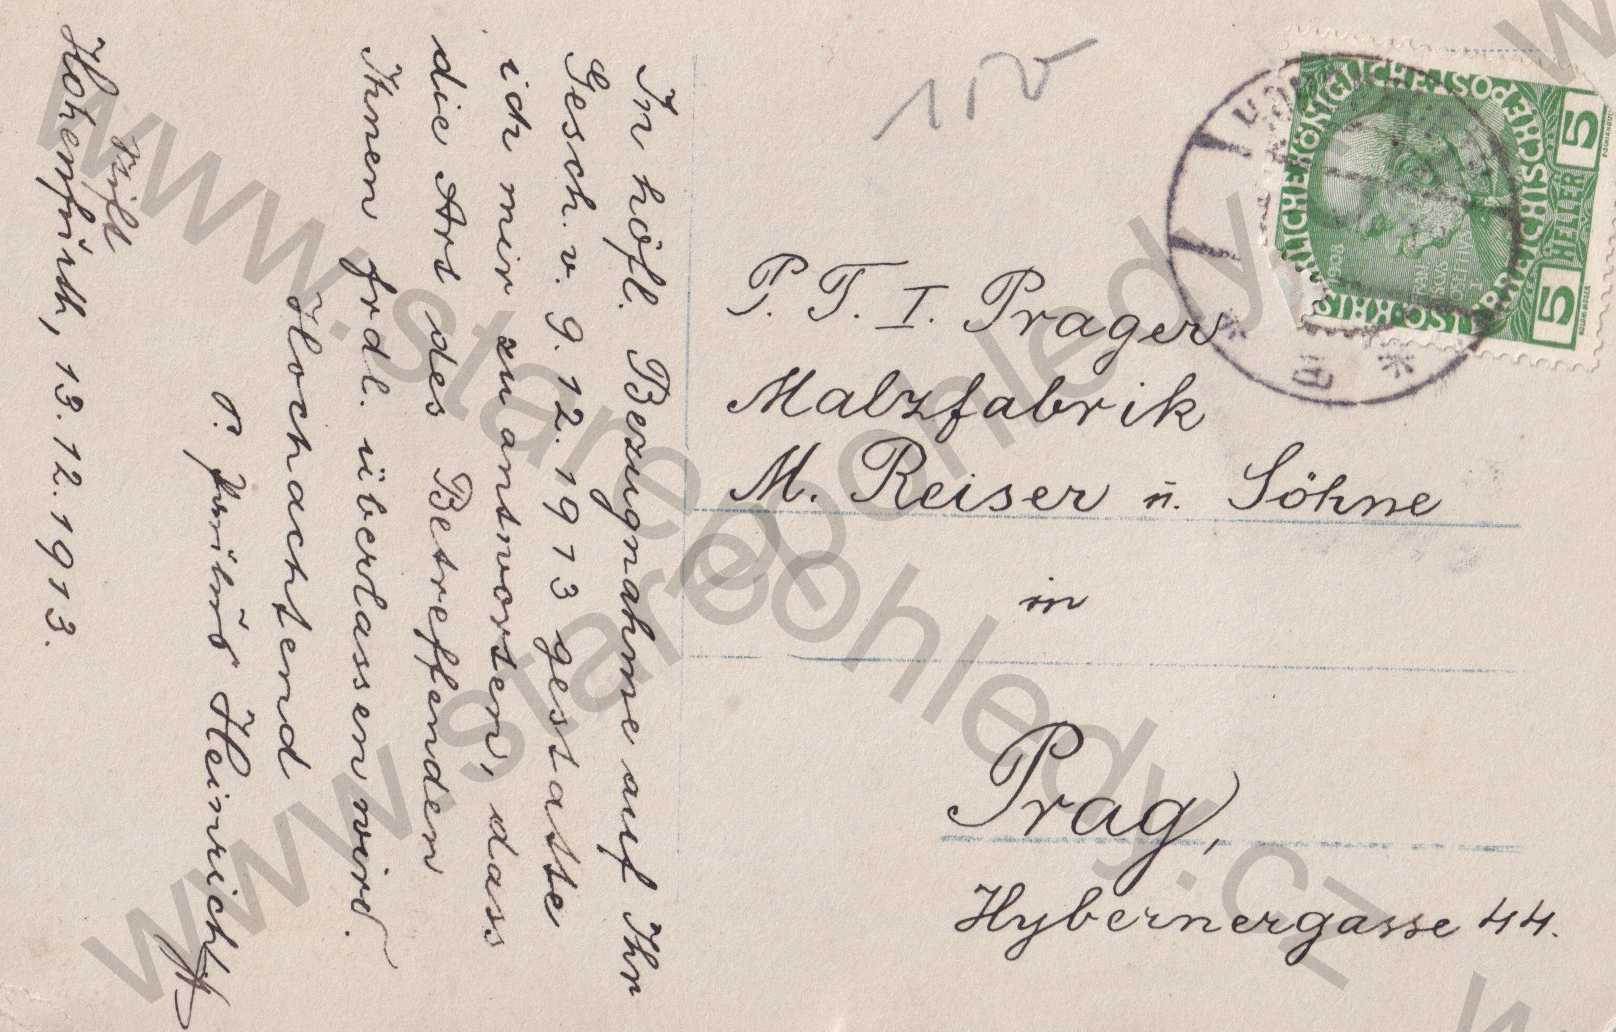 In höfl. Bezugnahme auf Ihr
Gesch. v. 9. 12. 1913 gestatte
ich mir zu antworten, dass
die Art des Betreffenden
Ihnen frdl. überlassen wird.
Hochachtend
Heinrich
Hohenfurth, 13. 12. 1913.
150
P. T. I. Prager
Malzfabrik
M. Reiser u. Söhne
in
Prag,
Hybernergasse 44.
KAISERLICHE KÖNIGLICHE ÖSTERREICHISCHE POST
5 HELLER 5
1908
B
www.starepohledy.cz
www.starepohledy.cz